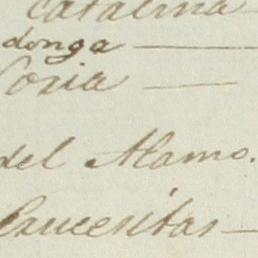 Catalina —
donga —
Soria —
del Alamo.
Crucesitas —